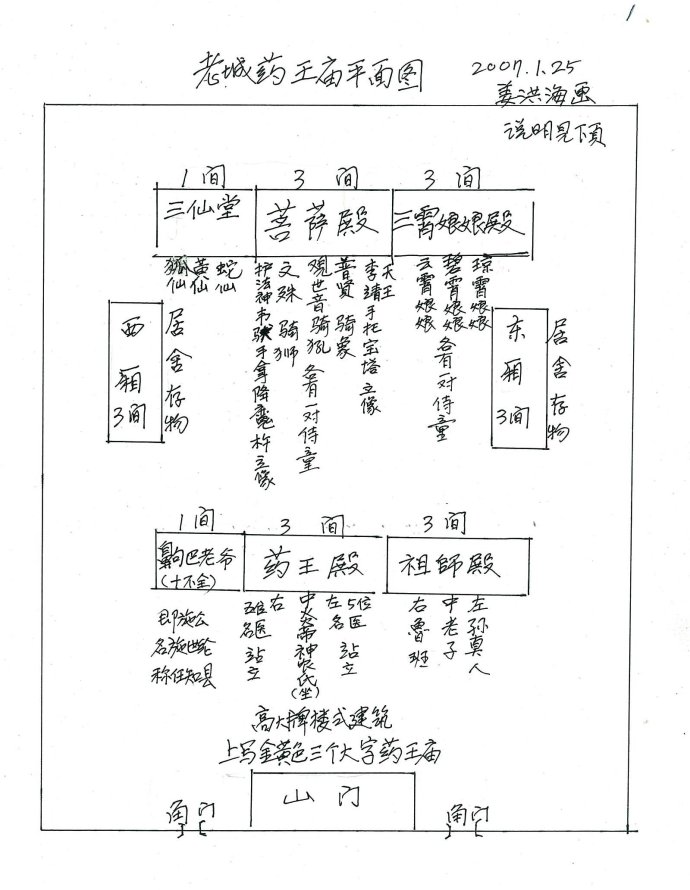 1
老城药王庙平面图
2007.1.25
姜洪海画
说明见下页
1间
3间
3间
三仙堂
菩萨殿
三霄娘娘殿
狐仙
黄仙
蛇仙
护法神韦驮手拿降魔杵立像
文殊骑狮
观世音骑犼
各有一对侍童
普贤骑象
李靖手托宝塔立像
天王
云霄娘娘
碧霄娘娘
各有一对侍童
琼霄娘娘
西厢3间
居舍存物
东厢3间
居舍存物
1间
3间
3间
巴老爷
(十不全)
药王殿
祖師殿
即施公
名施世纶
称任知县
名医站立
右
中炎帝神农氏(坐)
左名医
5位站立
右魯班
中老子
左孙真人
高大牌楼式建筑
上写金黄色三个大字药王庙
山门
角门
角门